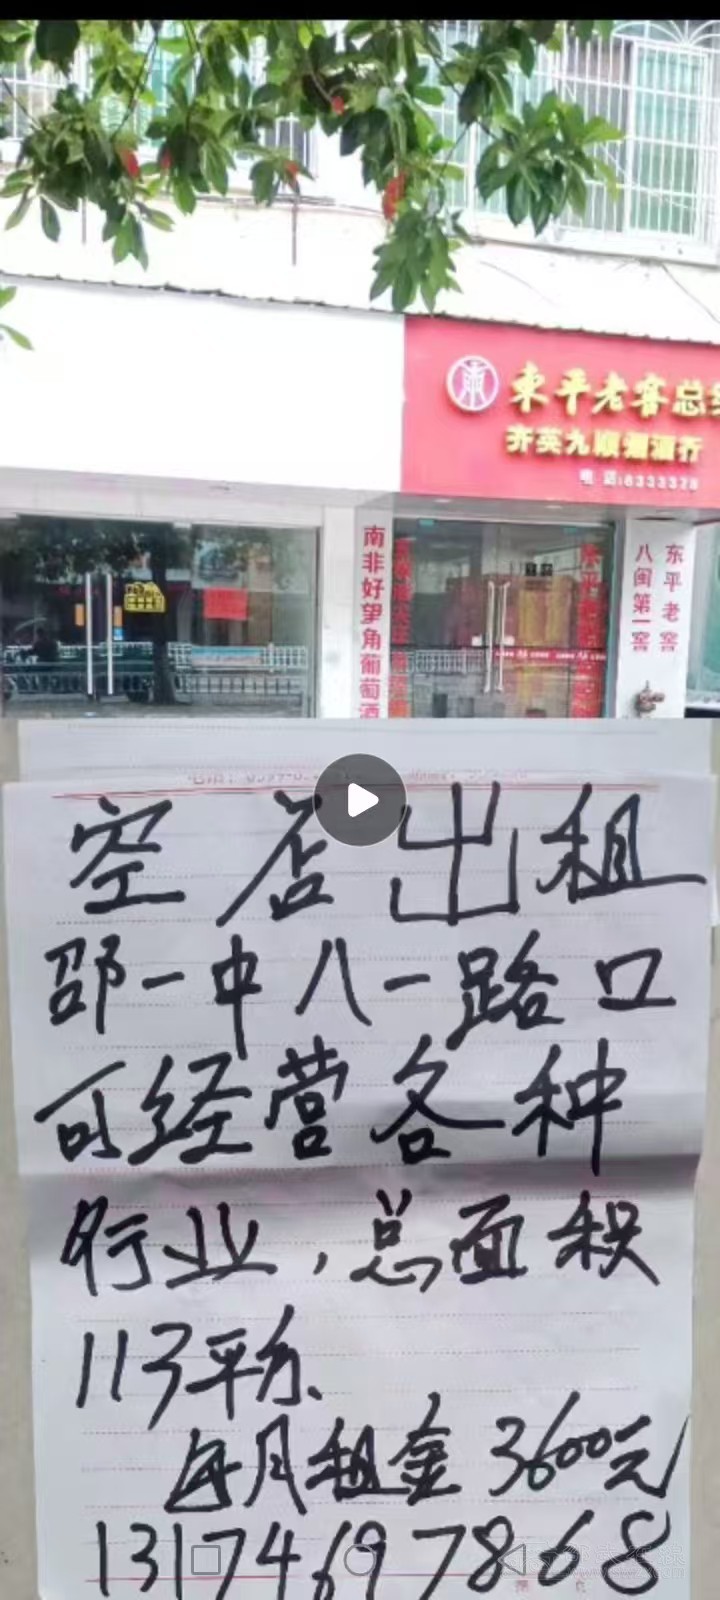 東平老窖总
齐英九顺酒行
电 话:6333328
南非好望角葡萄酒
八闽第一窖
东平老窖
空店出租
邵一中八一路口
可经营各种
行业，总面积
113平方、
每月租金3600元
13174697868